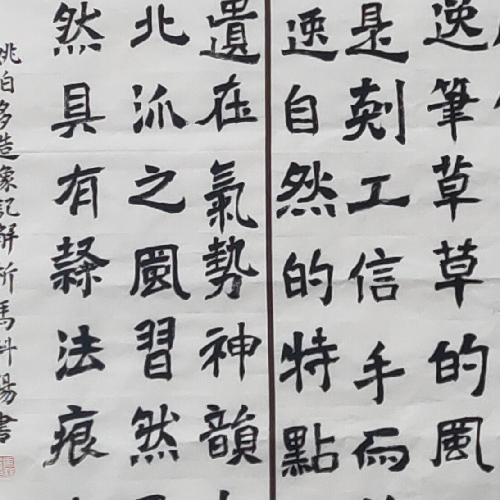 逸筆草草的風
是刻工信手而
自然的特點
遺在氣勢神韻
北派之風習然
然具有隸法痕
姚伯多造像記解析馬科陽書